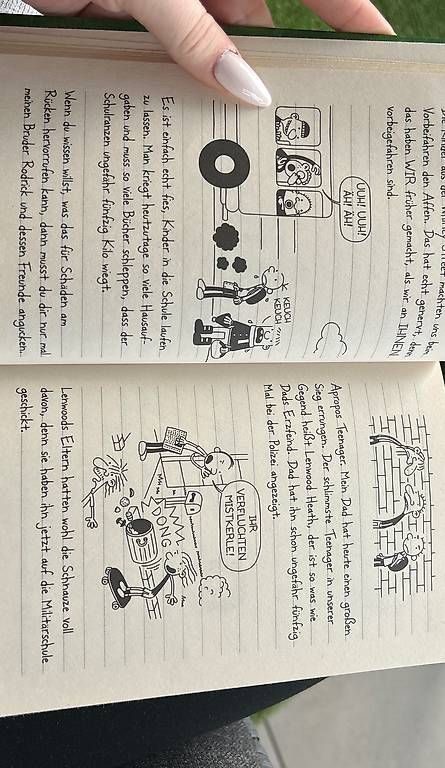 Vorbeifahren den Affen. Das hat echt genervt, denn
das haben WIR früher gemacht, als wir an IHNEN
vorbeigefahren sind.
UUH! UUH!
ÄH! ÄH!
KEUCH
KEUCH
Es ist einfach echt fies, Kinder in die Schule laufen
zu lassen. Man kriegt heutzutage so viele Hausauf-
gaben und muss so viele Bücher schleppen, dass der
Schulranzen ungefähr fünfzig Kilo wiegt.
Wenn du wissen willst, was das für Schäden am
Rücken hervorrufen kann, dann musst du dir nur mal
meinen Bruder Rodrick und dessen Freunde angucken.
Apropos Teenager: Mein Dad hat heute einen großen
Sieg errungen. Der schlimmste Teenager in unserer
Gegend heißt Lenwood Heath, der ist so was wie
Dads Erzfeind. Dad hat ihn schon ungefähr fünfzig
Mal bei der Polizei angezeigt.
IHR
VERFLUCHTEN
MISTKERLE!
DONG
Lenwoods Eltern hatten wohl die Schnauze voll
davon, denn sie haben ihn jetzt auf die Militärschule
geschickt.